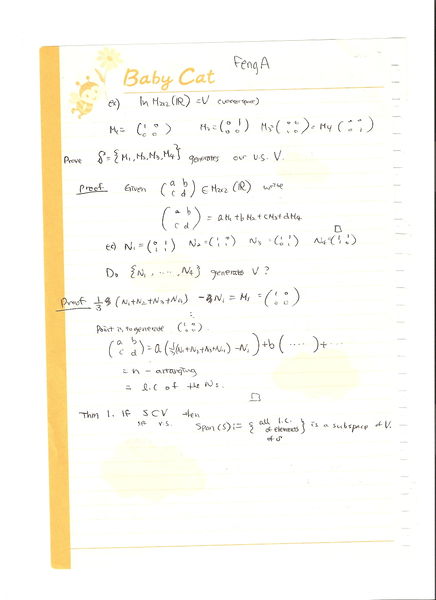 Baby Cat
FengA
ex) In M2x2(ℝ) = V (vector space)
M1 = (1 0 / 0 0) M2 = (0 1 / 0 0) M3 = (0 0 / 1 0) = M4 (0 0 / 0 1)
Prove S = {M1, M2, M3, M4} generates our V.S. V.
Proof Given (a b / c d) ∈ M2x2(ℝ) write
(a b / c d) = aM1 + bM2 + cM3 + dM4
□
ex) N1 = (0 1 / 1 1) N2 = (1 0 / 1 1) N3 = (1 1 / 0 1) N4 = (1 1 / 1 0)
Do {N1, ..., N4} generate V?
Proof 1/3 (N1+N2+N3+N4) - N1 = M1 = (1 0 / 0 0)
⋮
Point is to generate (1 0 / 0 0).
(a b / c d) = a(1/3(N1+N2+N3+N4) - N1) + b(....) + ...
= n - arranging
= l.c of the Ns.
□
Thm 1. If S ⊂ V then
set v.s.
Span(S) := {all l.c. of elements of S} is a subspace of V.